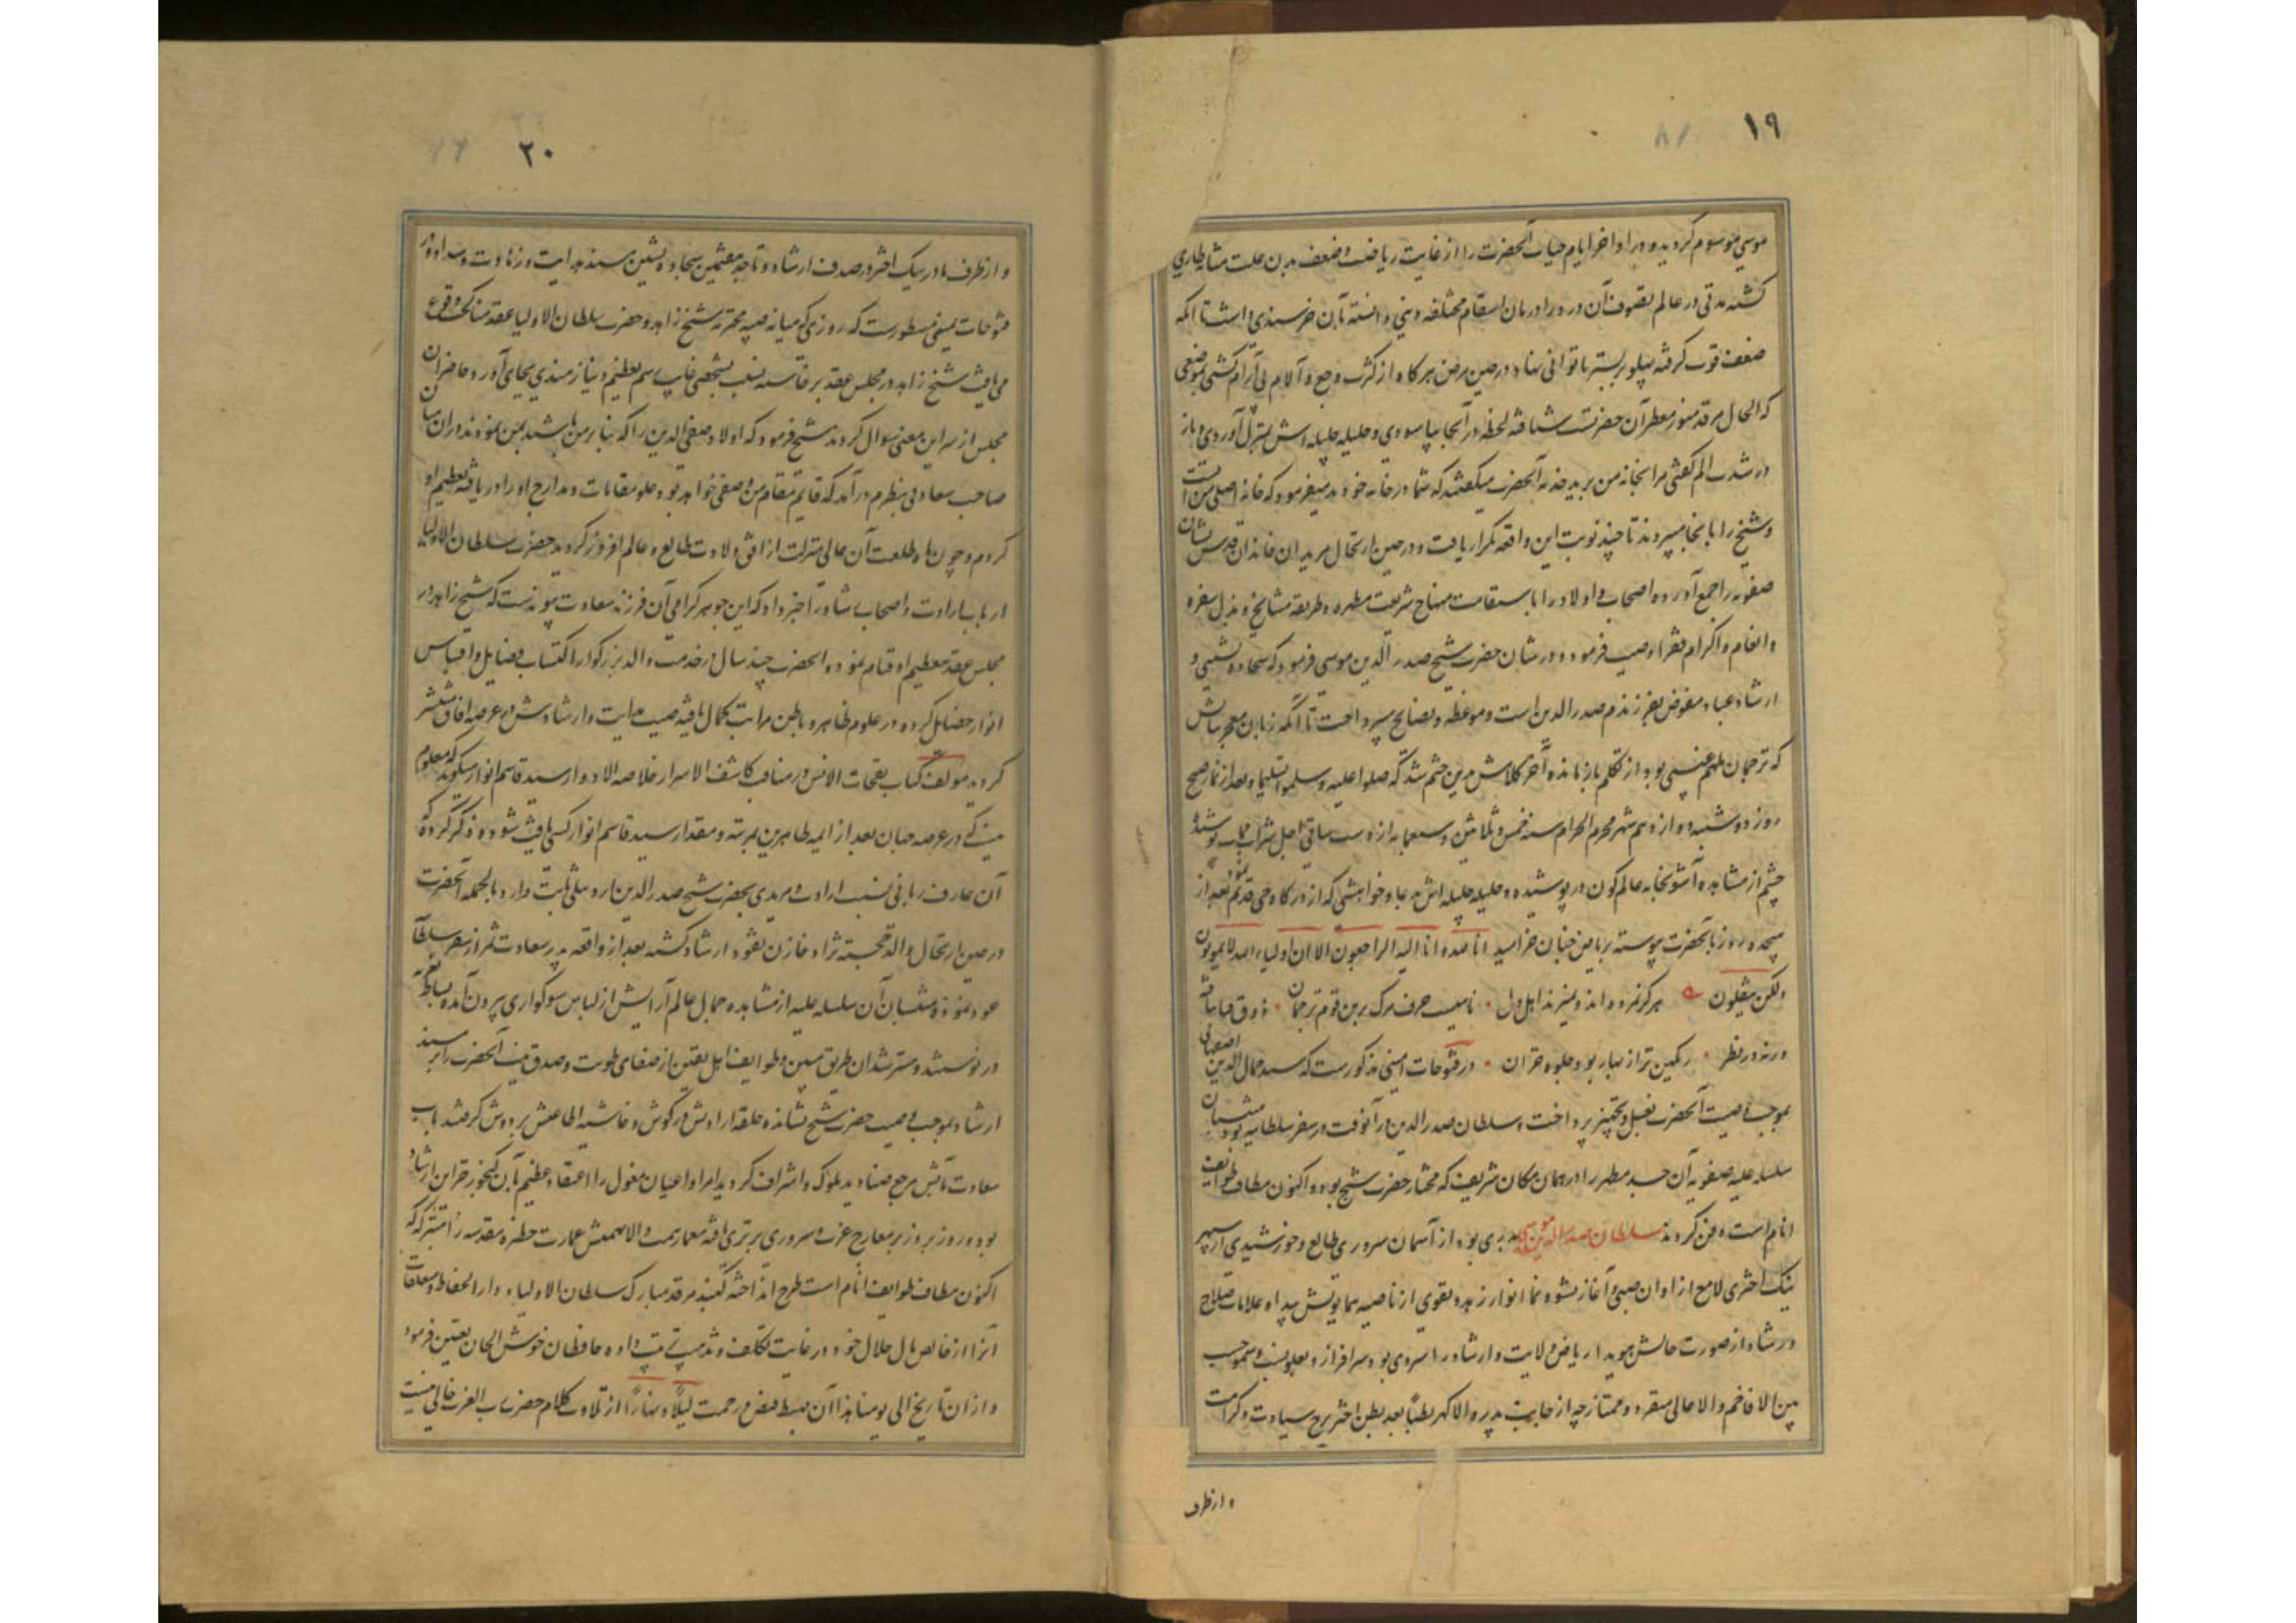 ١٩
موسی موسوم کردید و در اواخر ایام حیات آنحضرت را از غایت ریاضت و ضعف بدن علت مثانه طاری
کشته مدتی در عالم تصوف آن درد را درمان اسقام مختلفه دینی دانسته بآن خرسندی داشت تا آنکه
ضعف قوت کرفته پهلو بر بستر ناتوانی نهاد و در حین مرض هر کاه از کثرت وجع و آلام بی آرام کشتی بموضعی
که الحال مرقد منور معطر آن حضرتست شتافته لحظه در آنجا بیاسودی و حلیله جلیله اش بمنزل آوردی و باز
در شدت الم کفتی مرا بخانه من برید خدمه آنحضرت میکفتند که شما در خانه خودید میفرمود که خانه اصلی من آنست
و شیخ را بآنجا میبردند تا چند نوبت این واقعه تکرار یافت و در حین ارتحال مریدان خاندان قدس نشان
صفویه را جمع آورده اصحاب و اولاد را باستقامت منهاج شریعت مطهره و طریقه مشایخ و بذل سفره
و انعام و اکرام فقرا وصیت فرموده و در شان حضرت شیخ صدر الدین موسی فرمود که سجاده نشینی و
ارشاد عباد مفوض بفرزندم صدر الدین است و موعظه و نصایح میپرداخت تا آنکه زبان معجز بیانش
که ترجمان ملهم غیبی بود از تکلم بازمانده آخر کلامش بدین ختم شد که صلوا علیه و سلموا تسلیما و بعد از نماز صبح
روز دوشنبه دوازدهم شهر محرم الحرام سنه خمس و ثلاثین و سبعمایه از دست ساقی اجل شراب ممات نوشیده
چشم از مشاهده آشوبخانه عالم کون در پوشیده و حلیله جلیله اش بدعا و خواهشی که از درکاه حی قدیم نمود بعد از
هیجده روز بآنحضرت پیوسته بریاض جنان خرامید انا لله و انا الیه راجعون الا ان اولیاء الله لا یموتون
ولکن ینقلون هرکز نمرده اند و نمیرند اهل دل نامیست حرف مرک برین قوم ترجمان
ورنه در نظر رنکین تر از بهار بود جلوه خزان در فتوحات امینی مذکورست که سید جمال الدین اصفهانی
بموجب وصیت آنحضرت بغسل و تجهیز پرداخت و سلطان صدر الدین در آنوقت در سفر سلطانیه بود منتسبان
سلسله علیه صفویه آن جسد مطهر را در همان مکان شریف که مختار حضرت شیخ بود و اکنون مطاف طوایف
انام است دفن کردند سلطان صدر الدین موسی بدری بود از آسمان سروری طالع و خورشیدی از سپهر
نیک اختری لامع از اوان صبی و آغاز نشو و نما انوار زهد و تقوی از ناصیه همایونش پیدا و علامات صلاح
و رشاد از صورت حالش هویدا ریاض ولایت و ارشاد را سروی بود سرافراز و بعلو نسب و سمو حسب
بین الافاخم و الاعالی متفرد و ممتاز چه از جانب پدر والاکهر بطنا بعد بطن اختر برج سیادت و کرامت
و از طرف
٢٠
و از طرف مادر نیک اختر در صدف ارشاد و تاجد معتمین سجاده نشین مسند هدایت و زهادت و سداد و در
فتوحات امینی مسطورست که روزی که میانه صبیه محترمه شیخ زاهد و حضرت سلطان الاولیا عقد مناکحت وقوع
می یافت شیخ زاهد در مجلس عقد برخاسته نسبت بشخصی غایب رسم تعظیم و نیازمندی بجای آورد حاضران
مجلس از سر این معنی سوال کردند شیخ فرمود که اولاد صفی الدین را که بنا بر من باشند بمن نمودند در آن میان
صاحب سعادتی بنظرم درآمد که قایم مقام من و صفی خواهد بود علو مقامات و مدارج او را دریافته تعظیم او
کردم و چون ماه طلعت آن عالی منزلت از افق ولادت طالع و عالم افروز کردید حضرت سلطان الاولیا
ارباب ارادت و اصحاب رشاد را خبر داد که این جوهر کرامی آن فرزند سعادت پیوندست که شیخ زاهد در
مجلس عقد بتعظیم او قیام نموده آنحضرت چند سال در خدمت والد بزرکوار اکتساب فضایل و اقتباس
انوار خصایل کرده در علوم ظاهر و باطن مراتب کمال یافته صیت هدایت و ارشادش در عرصه آفاق منتشر
کردید مولف کتاب نفحات الانس در مناقب کاشف الاسرار خلاصه الادوار سید قاسم انوار میکوید که معلوم
نیست که در عرصه جهان بعد از ایمه طاهرین بمرتبه و مقدار سید قاسم انوار کسی یافت شود و ذکر کرده که
آن عارف ربانی نسبت ارادت و مریدی بحضرت شیخ صدر الدین اردبیلی ثابت دارد بالجمله آنحضرت
در حین ارتحال والد خجسته نژاد خازن نقود ارشاد کشته بعد از واقعه پدر سعادت ثمر از سفر سلطانیه
عود نموده منتسبان آن سلسله علیه از مشاهده جمال عالم آرایش از لباس سوکواری بیرون آمده بساط تعزیه
در نوشتند و مسترشدان طریق مبین و طوایف اهل یقین از صفای طویت و صدق نیت آنحضرت را بر مسند
ارشاد بموجب وصیت حضرت شیخ نشانده حلقه ارادتش در کوش و غاشیه اطاعتش بر دوش کرفتند باب
سعادت مآبش مرجع صنادید ملوک و اشراف کردید امرا و اعیان مغول را اعتقاد عظیم بآن کنجور خزاین ارشاد
بوده روز بروز بر معارج عزت و سروری برتری یافته معمار همت والا نهمتش عمارت حظیره مقدسه متبرکه که
اکنون مطاف طوایف انام است طرح انداخته کنبد مرقد مبارک سلطان الاولیاء و دار الحفاظ و متعلقات
آنرا از خالص مال حلال خود در غایت تکلف و تذهیب ترتیب داده حافظان خوش الحان تعیین فرمود
و از ان تاریخ الی یومنا هذا آن مهبط فیض و رحمت لیلاً و نهاراً از تلاوت کلام حضرت رب العزت خالی نیست